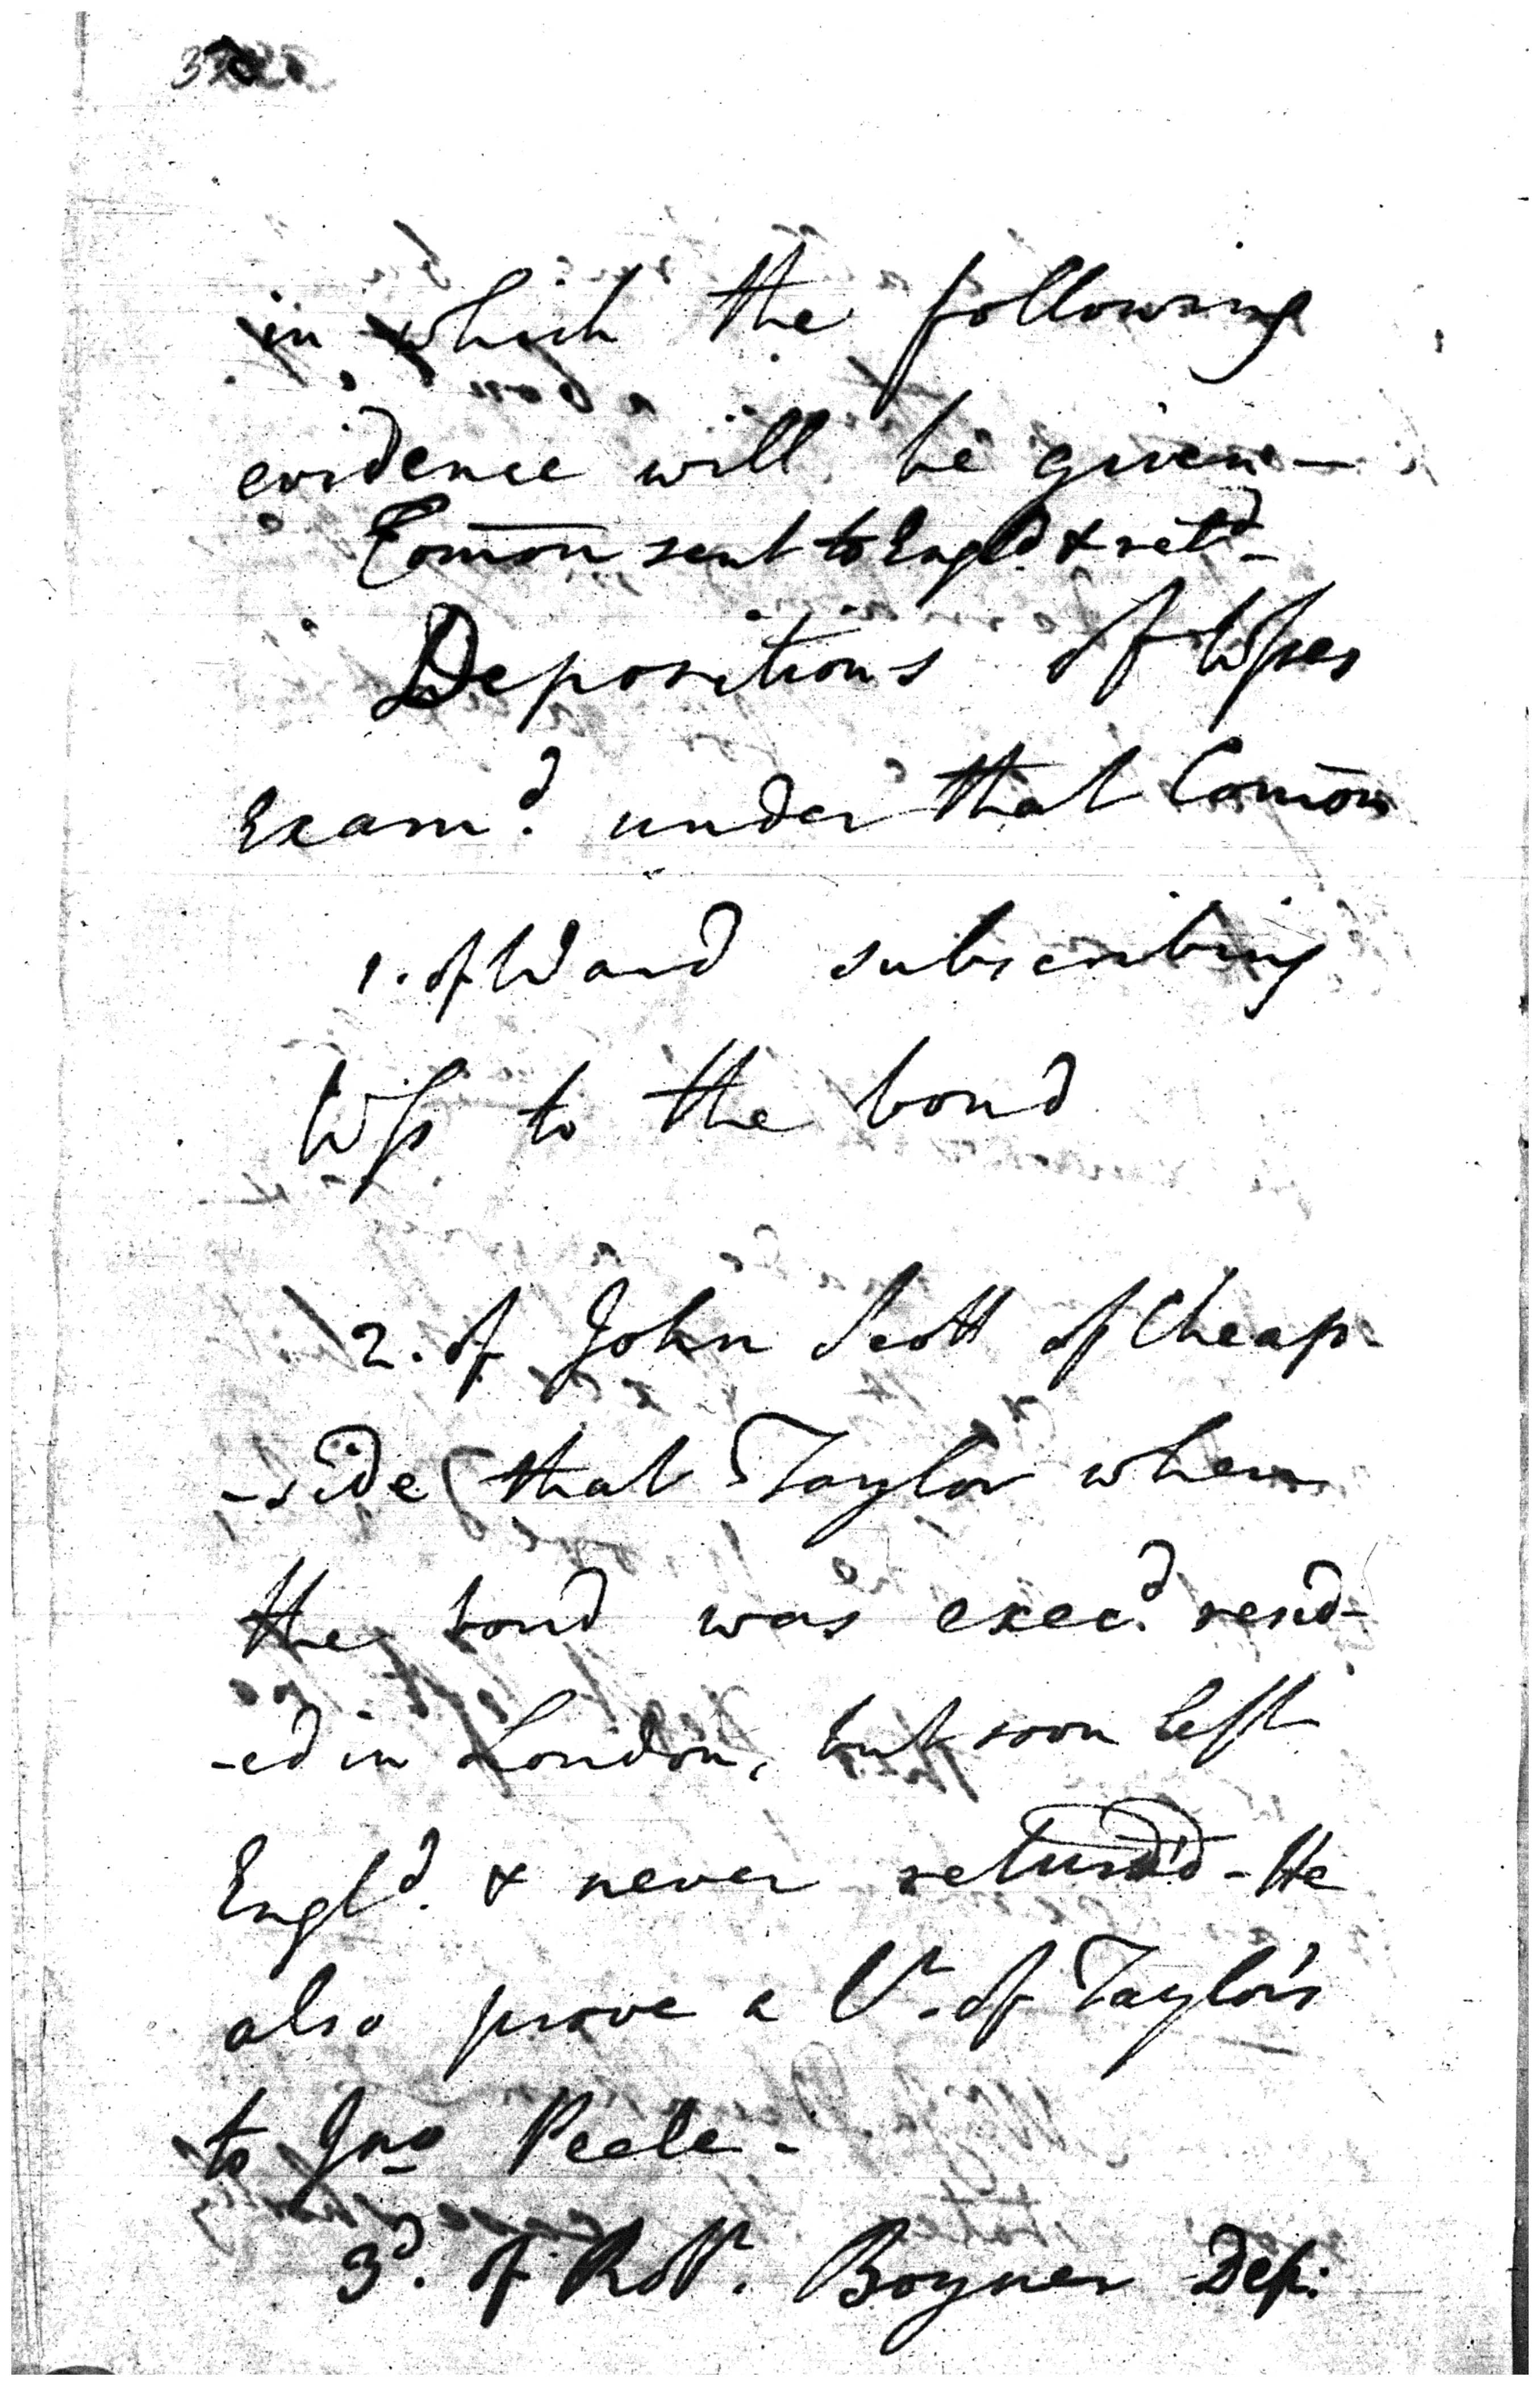 in which the following
evidence will be given —
Com̄on sent to Engld. & retd -
Depositions of Wſses
Examd. under that Com̄on
1. of Ward subscribing
Wſs to the bond
2. of John Scott of Cheap-
-side that Taylor when
the bond was execd. resid-
-ed in London, but soon left
Engld. & never returnd - He
also prove a Lr. of Taylor's
to Jno Peele -
3d. of Robt. Boyner Dep: